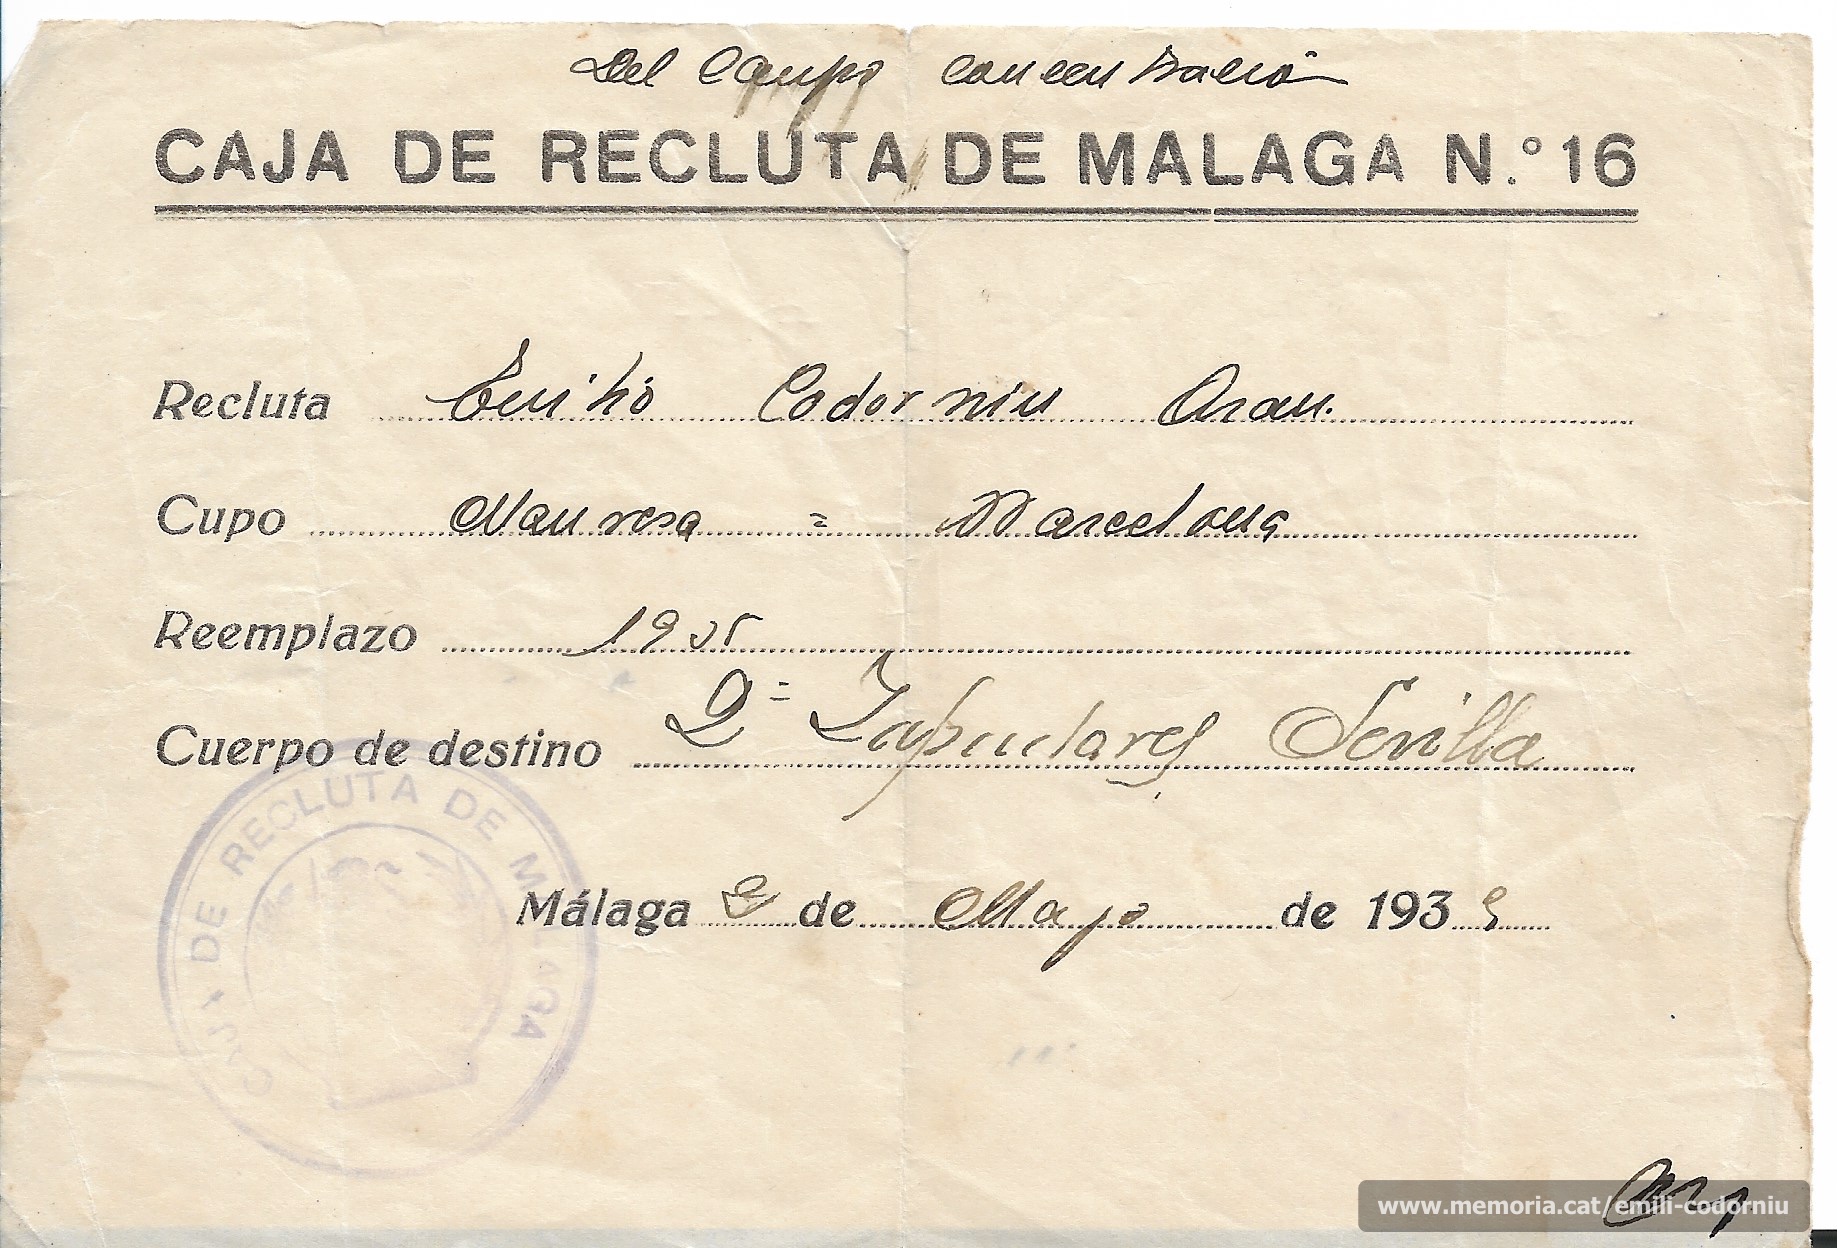 Del Campo concentración
CAJA DE RECLUTA DE MALAGA N.º 16
Recluta Emilio Codorniu Aran.
Cupo Manresa = Barcelona
Reemplazo 1935
Cuerpo de destino 2º Zapadores Sevilla
Málaga de Mayo de 1939
CAJA DE RECLUTA DE MALAGA
www.memoria.cat/emili-codorniu